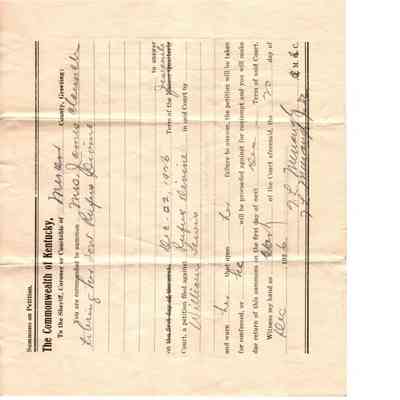 Summons on Petition.
The Commonwealth of Kentucky,
To the Sheriff, Coroner or Constable of County, Greeting:
You are commanded to summon Mrs. James
to bring her Son Rufus Devine
to answer
on the first day of the next Dec 22 1926 Term of the Quarterly
Court, a petition filed against Rufus Devine in said Court by
William Lewis
and warn her that upon her failure to answer, the petition will be taken
for confessed, or he will be proceeded against for contempt and you will make
due return of this summons on the first day of next Term of said Court.
Witness my hand as Clerk of the Court aforesaid, the 20 day of
Dec 1926